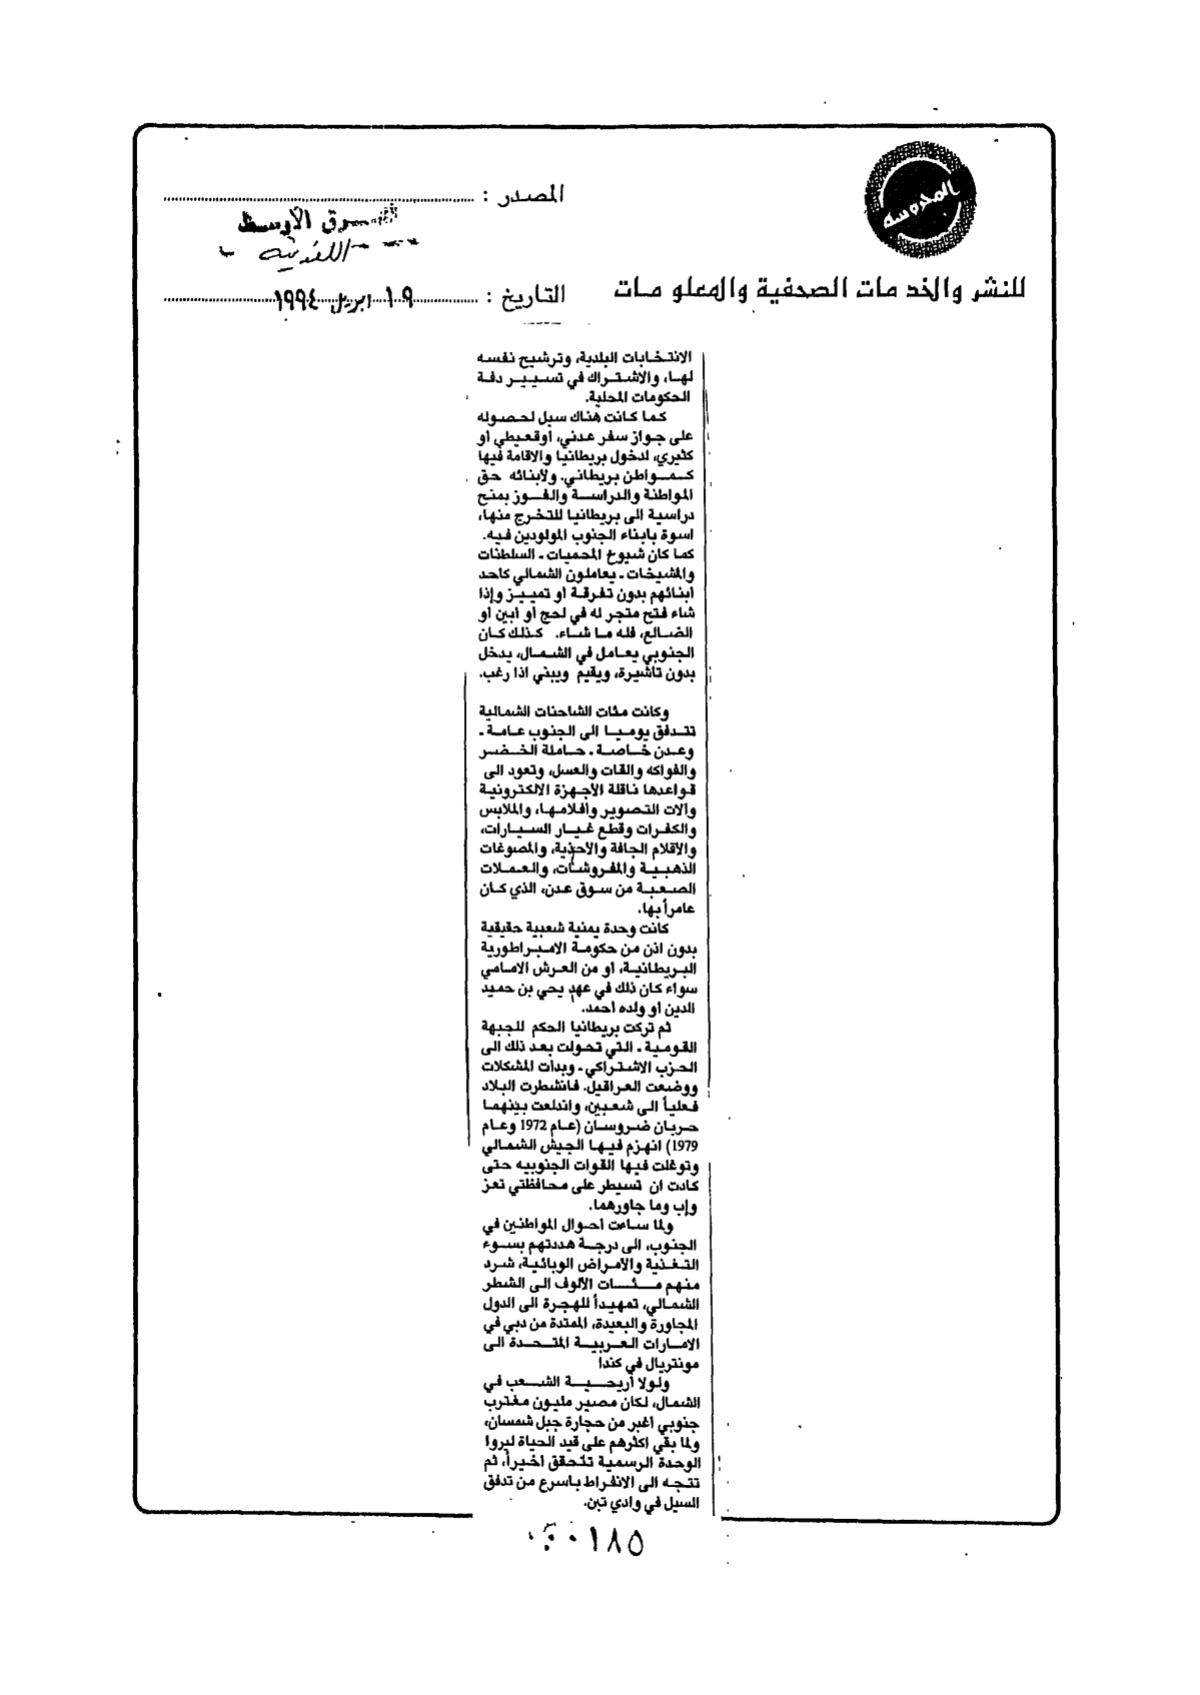 المحروسة
للنشر والخدمات الصحفية والمعلومات
المصدر :
الشرق الأوسط
اللندنية
التاريخ : ١٩ ابريل ١٩٩٤
الانتخابات البلدية، وترشيح نفسه
لها، والاشتراك في تسيير دفة
الحكومات المحلية.
كما كانت هناك سبل لحصوله
على جواز سفر عدني، اوقعيطي أو
كثيري، لدخول بريطانيا والاقامة فيها
كمواطن بريطاني. ولابنائه حق
المواطنة والدراسة والفوز بمنح
دراسية الى بريطانيا للتخرج منها،
اسوة بابناء الجنوب المولودين فيه.
كما كان شيوخ المحميات ـ السلطنات
والمشيخات ـ يعاملون الشمالي كاحد
ابنائهم بدون تفرقة او تمييز وإذا
شاء فتح متجر له في لحج او ابين او
الضالع، فله ما شاء. كذلك كان
الجنوبي يعامل في الشمال، يدخل
بدون تاشيرة، ويقيم ويبني اذا رغب.
وكانت مئات الشاحنات الشمالية
تتدفق يوميا الى الجنوب عامة ـ
وعدن خاصة ـ حاملة الخضر
والفواكه والقات والعسل، وتعود الى
قواعدها ناقلة الأجهزة الالكترونية
والات التصوير وافلامها، والملابس
والكفرات وقطع غيار السيارات،
والاقلام الجافة والاحذية، والمصوغات
الذهبية والمفروشات، والعملات
الصعبة من سوق عدن، الذي كان
عامراً بها.
كانت وحدة يمنية شعبية حقيقية
بدون اذن من حكومة الامبراطورية
البريطانية، او من العرش الامامي
سواء كان ذلك في عهد يحي بن حميد
الدين او ولده احمد.
ثم تركت بريطانيا الحكم للجبهة
القومية ـ التي تحولت بعد ذلك الى
الحزب الاشتراكي ـ وبدات المشكلات
ووضعت العراقيل. فانشطرت البلاد
فعلياً الى شعبين، واندلعت بينهما
حربان ضروسان (عام 1972 وعام
1979) انهزم فيها الجيش الشمالي
وتوغلت فيها القوات الجنوبيه حتى
كادت ان تسيطر على محافظتي تعز
وإب وما جاورهما.
ولما ساءت احوال المواطنين في
الجنوب، الى درجة هددتهم بسوء
التغذية والامراض الوبائية، شرد
منهم مئات الألوف الى الشطر
الشمالي، تمهيداً للهجرة الى الدول
المجاورة والبعيدة، الممتدة من دبي في
الامارات العربية المتحدة الى
مونتريال في كندا
ولولا أريحية الشعب في
الشمال، لكان مصير مليون مغترب
جنوبي أغبر من حجارة جبل شمسان،
ولما بقي اكثرهم على قيد الحياة ليروا
الوحدة الرسمية تتحقق اخيراً، ثم
تتجه الى الانفراط باسرع من تدفق
السيل في وادي تبن.
٠٠١٨٥